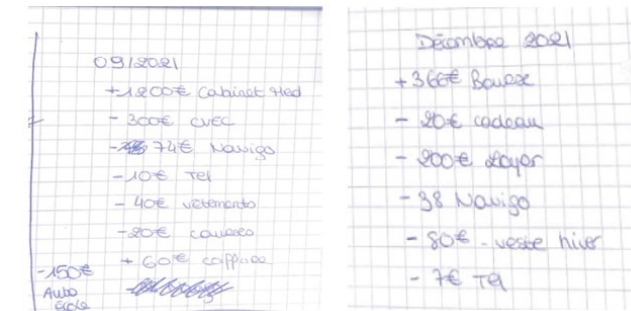 09/2021
+1200€ Cabinet Med
- 300€ CVEC
- 74€ Navigo
- 10€ Tel
- 40€ vêtements
- 20€ courses
+ 60€ coiffure
-150€
Auto
école
Décembre 2021
+366€ Bourse
- 20€ cadeau
- 200€ Loyer
- 38 Navigo
- 80€ - veste hiver
- 7€ Tel